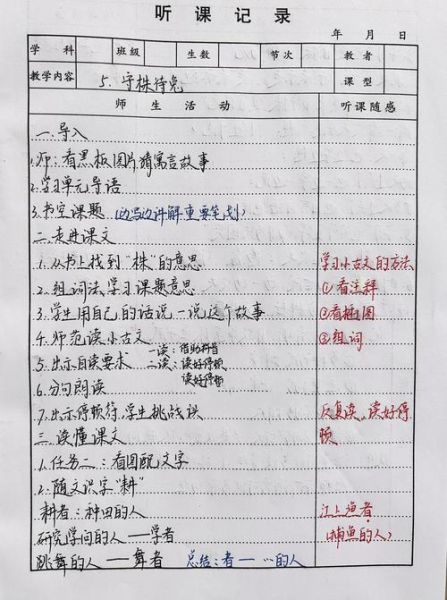 听课记录
年 月 日
学科 班级 生数 节次 教者
教学内容 5.守株待兔 课型
师生活动 听课随感
一.导入
1.师:看黑板图片猜寓言故事
2.学习单元导语
3.书空课题(边写边讲解重要笔划)
二.走进课文
1.从书上找到“株”的意思 学习小古文的方法
2.组词法学习课题意思 ①看注释
3.学生用自己的话说一说这个故事 ②看插图
4.师范读小古文 ③组词
一读:借助拼音
5.出示自读要求 二读:读好停顿
读好停顿
6.分句朗读
7.出示停顿符,学生挑战读 反复读,读好停顿
三.读懂课文
1.任务二:看图配文字
2.随文识字“耕”
耕者:种田的人 江上渔者
研究学问的人——学者 (捕鱼的人)
跳舞的人——舞者 总结:者——…的人